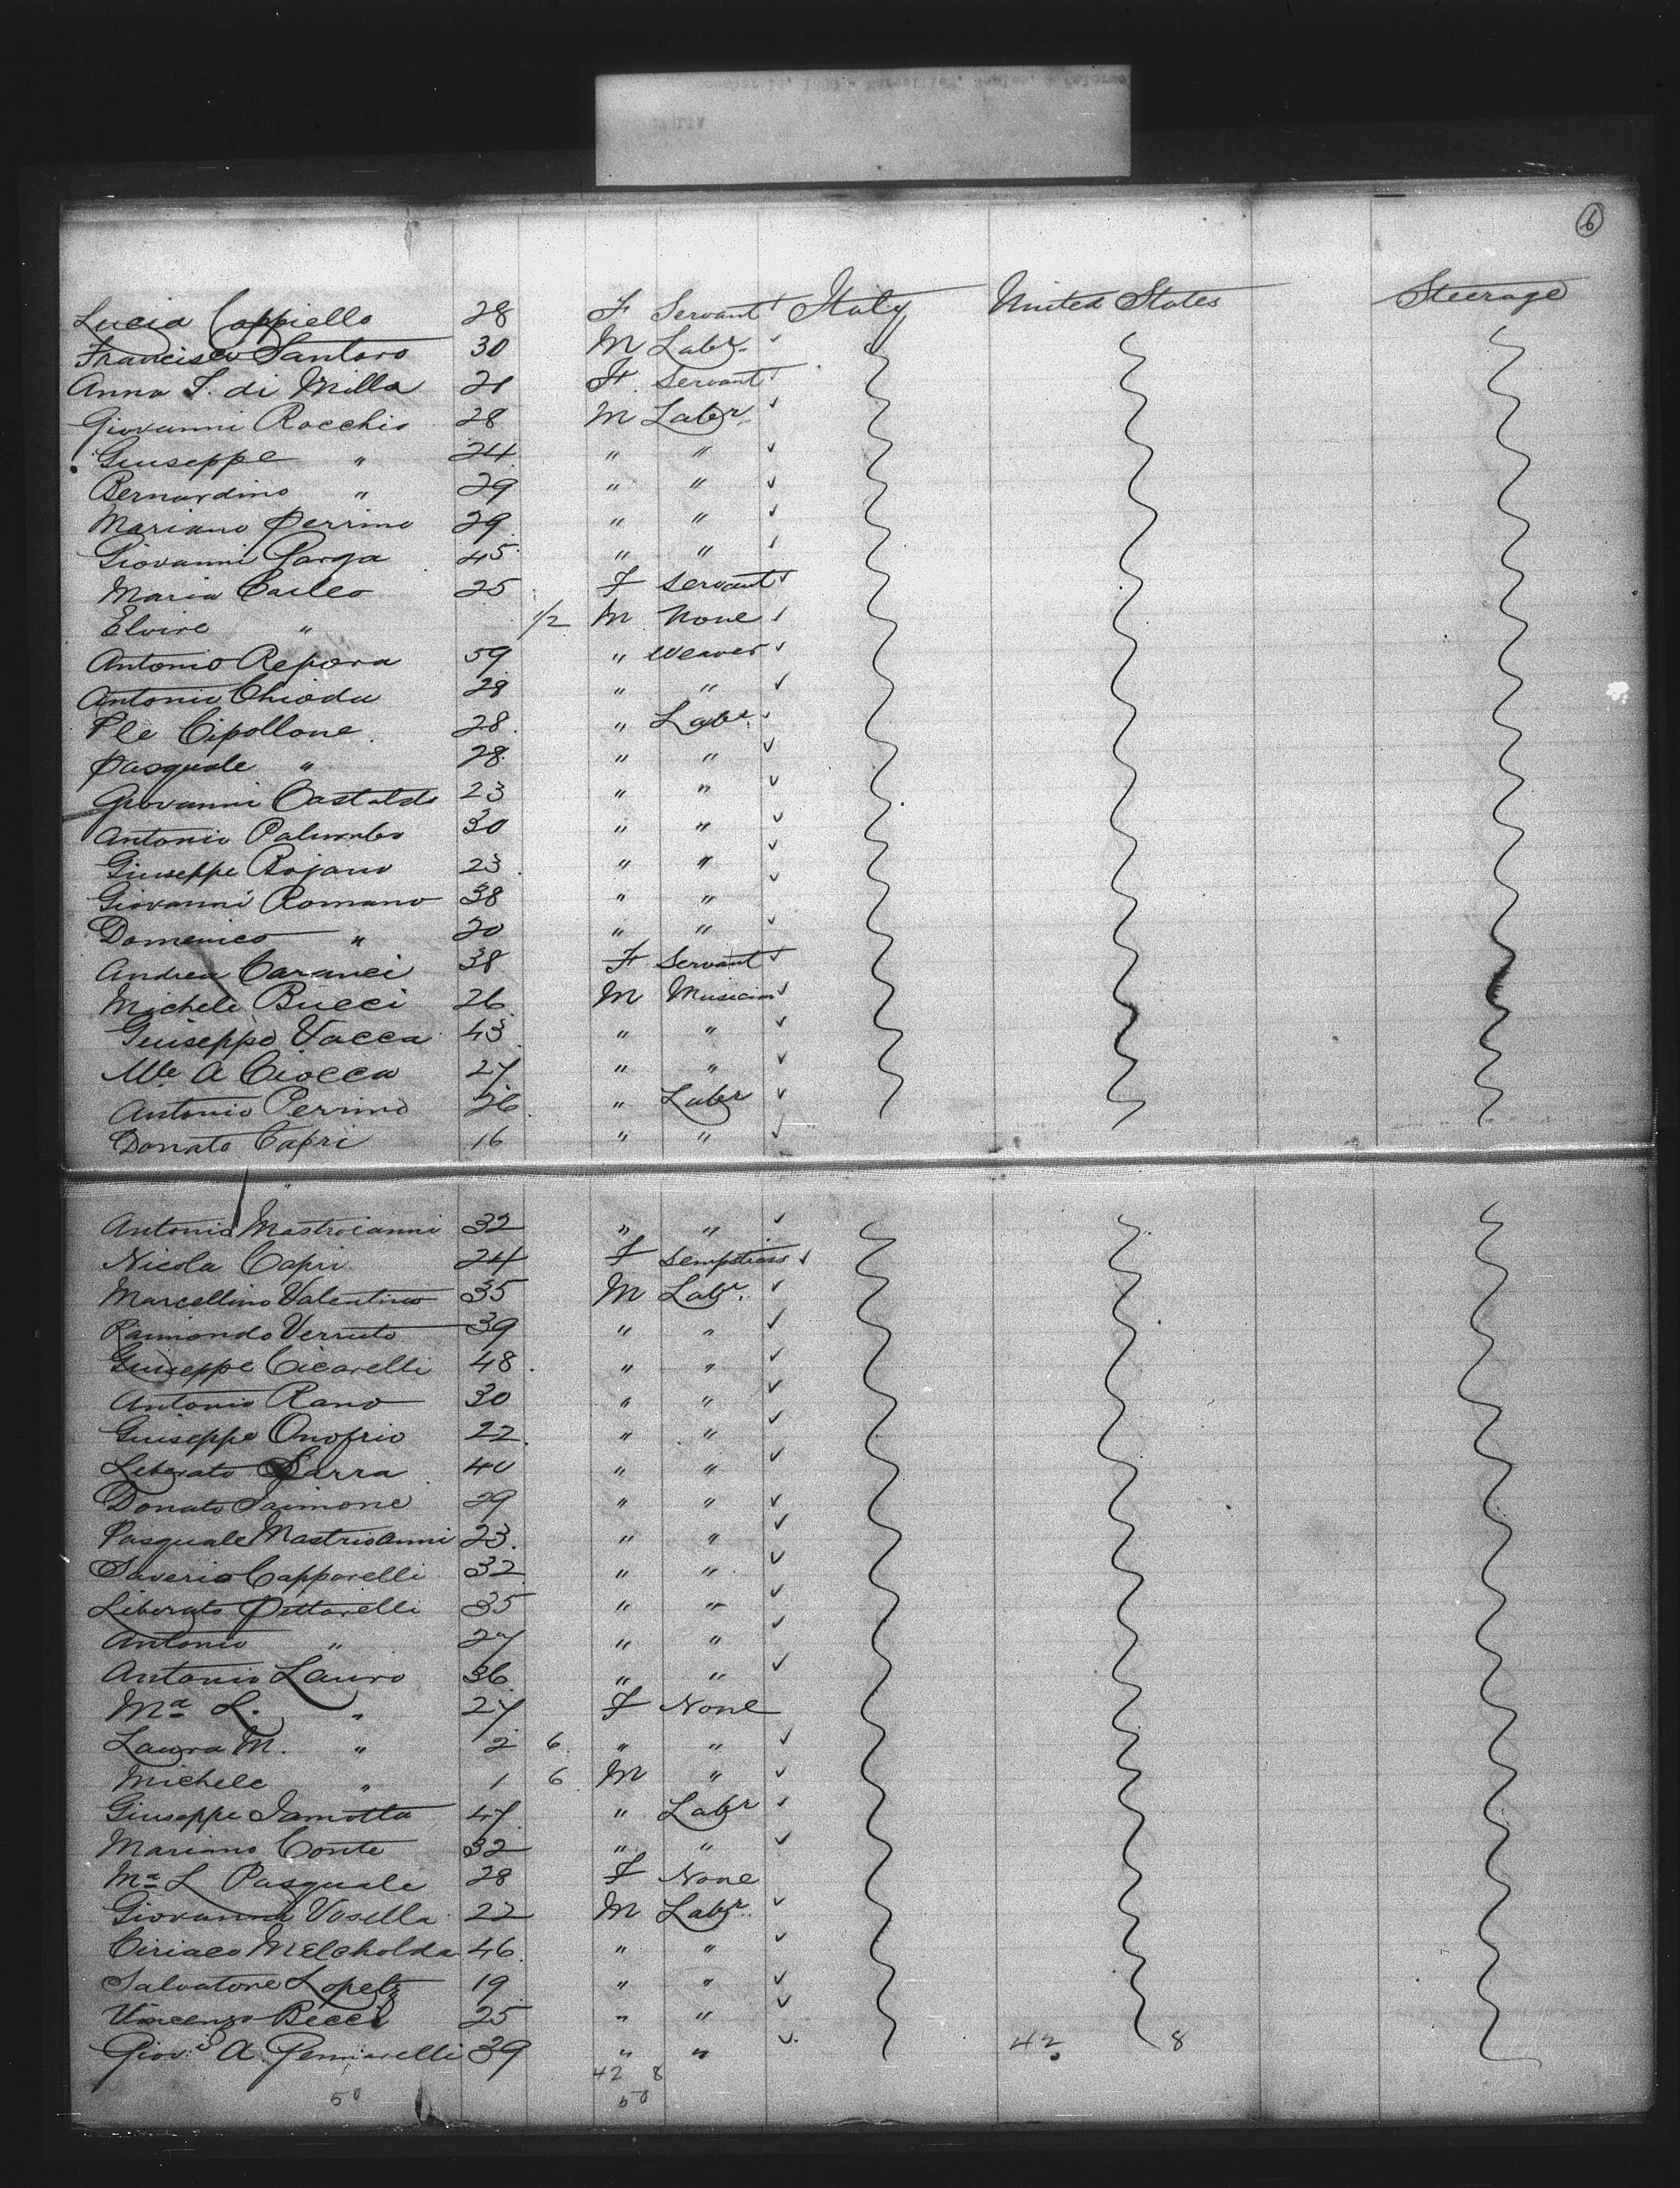 6
Lucia Cappiello 28 F Servant Italy United States Steerage
Francisco Santoro 30 M Labr.
Anna S. di Milla 21 F Servant
Giovanni Rocchio 28 M Labr
Giuseppe " 24 " "
Bernardino " 29 " "
Mariano Perrino 29 " "
Giovanni 45 " "
Maria 25 F Servant
Elvire " 1/2 M None
Antonio Repora 59 " Weaver
Antonio Chioda 28 " "
Ple Cipollone 28 " Labr.
Pasquale " 28 " "
Giovanni Castaldo 23 " "
Antonio Palumbo 30 " "
Giuseppe Bojano 23 " "
Giovanni Romano 38 " "
Domenico " 20 " "
Andrea Caranci 38 F Servant
Michele Bucci 26 M Musician
Giuseppe Vacca 43 " "
A Ciocca 27 " "
Antonio Perrino 26 " Labr
Donato Capri 16 " "
Antonio Mastroianni 32 " "
Nicola Capri 24 F Sempstress
Marcellino Valentino 35 M Labr.
Raimondo Verruto 39 " "
Giuseppe Cicarelli 48 " "
Antonio Rano 30 " "
Giuseppe Onofrio 22 " "
Liberato Sarra 40 " "
Donato Saimone 29 " "
Pasquale Mastrioanni 23 " "
Saverio Capparelli 32 " "
Liberato Pittarelli 35 " "
Antonio " 27 " "
Antonio Lauro 36 " "
Ma L. " 27 F None
Laura M. " 2 6 " "
Michele " 1 6 M "
Giuseppe Iamotta 47 " Labr
Mariano Conte 32 " "
Ma L Pasquale 28 F None
Giovanni Vasella 22 M Labr.
Ciriaco 46 " "
Salvatore Lopetz 19 " "
Vincenzo Becci 25 " "
Giovi A. Gennarelli 39 " " 42 8
42 8
50 50